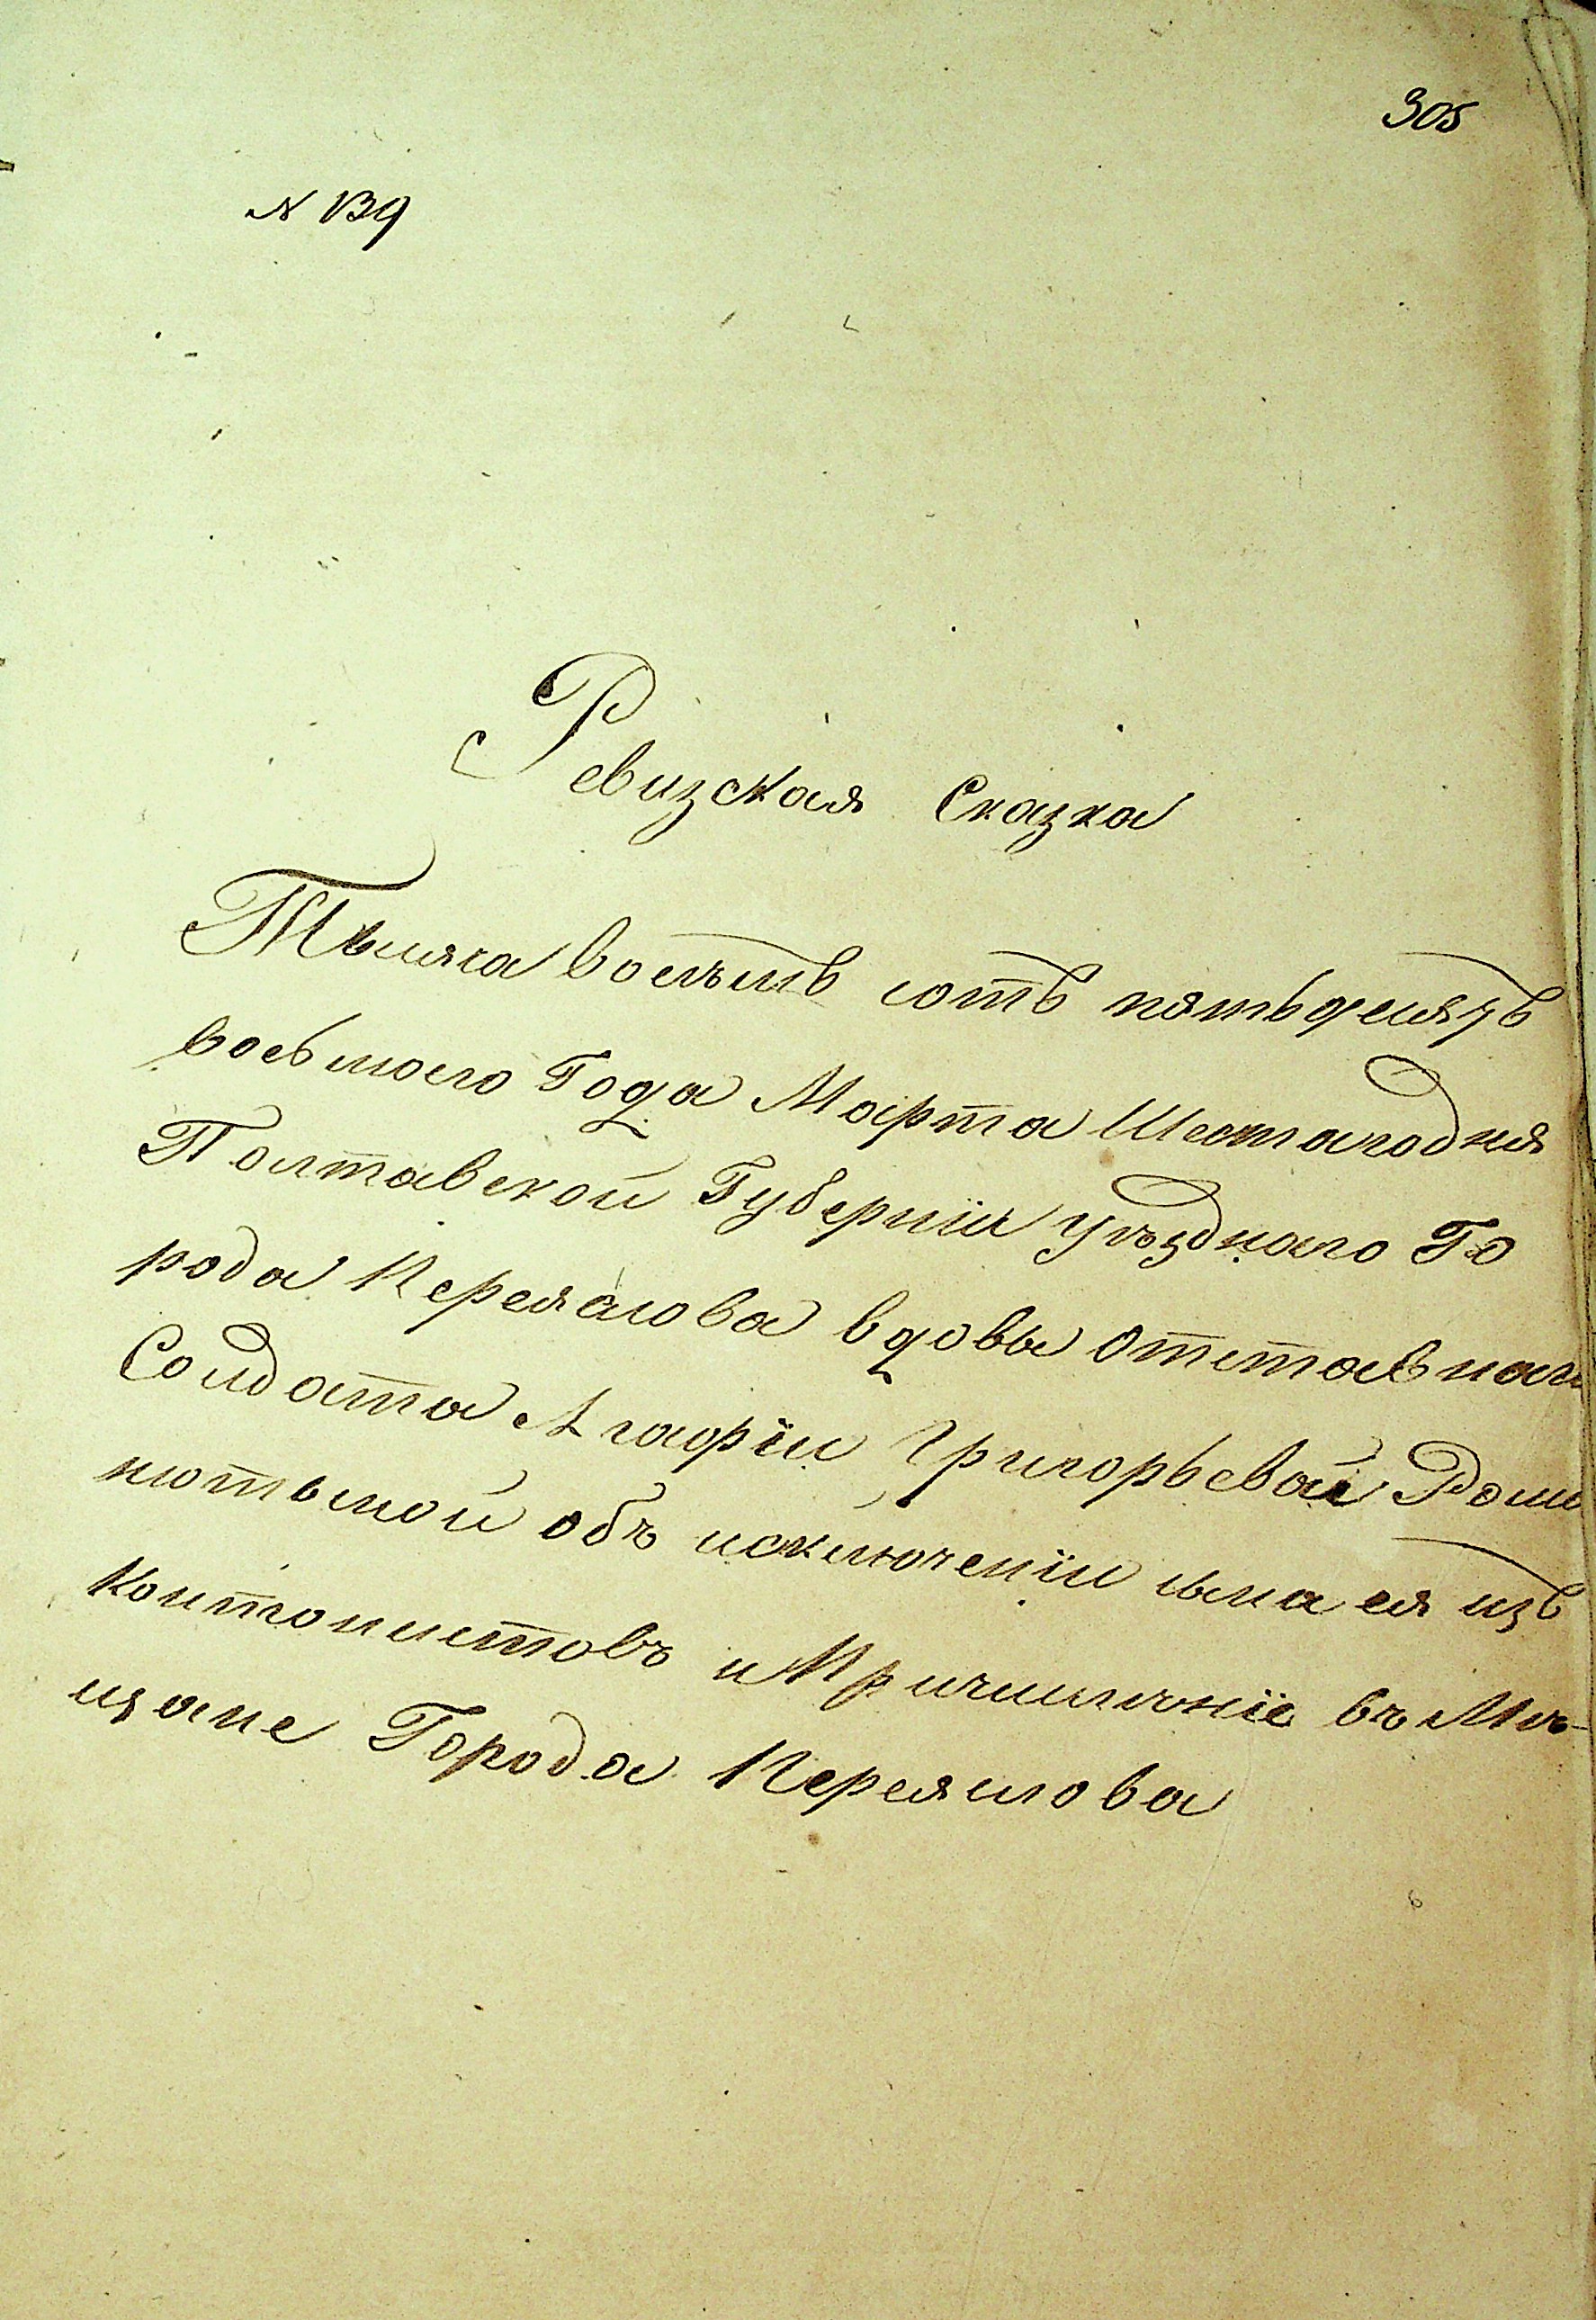 305
N 139
Ревизская Сказка
Тысяча восемь сотъ пятьдесятъ
восьмого Года Марта Шестагодня
Полтавской Губерніи уѣзднаго Го
рода Переяслова вдовы отставнаго
Солдата Агафіи Григорьевой
объ исключеніи сына ея изъ
Контонистовъ и Причисленіе въ Мѣ-
щане Города Переяслова